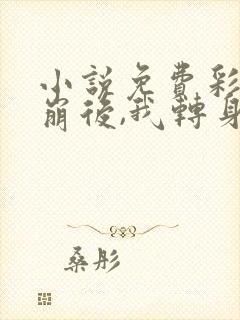 小說免費彩
崩後,我轉身
桑彤